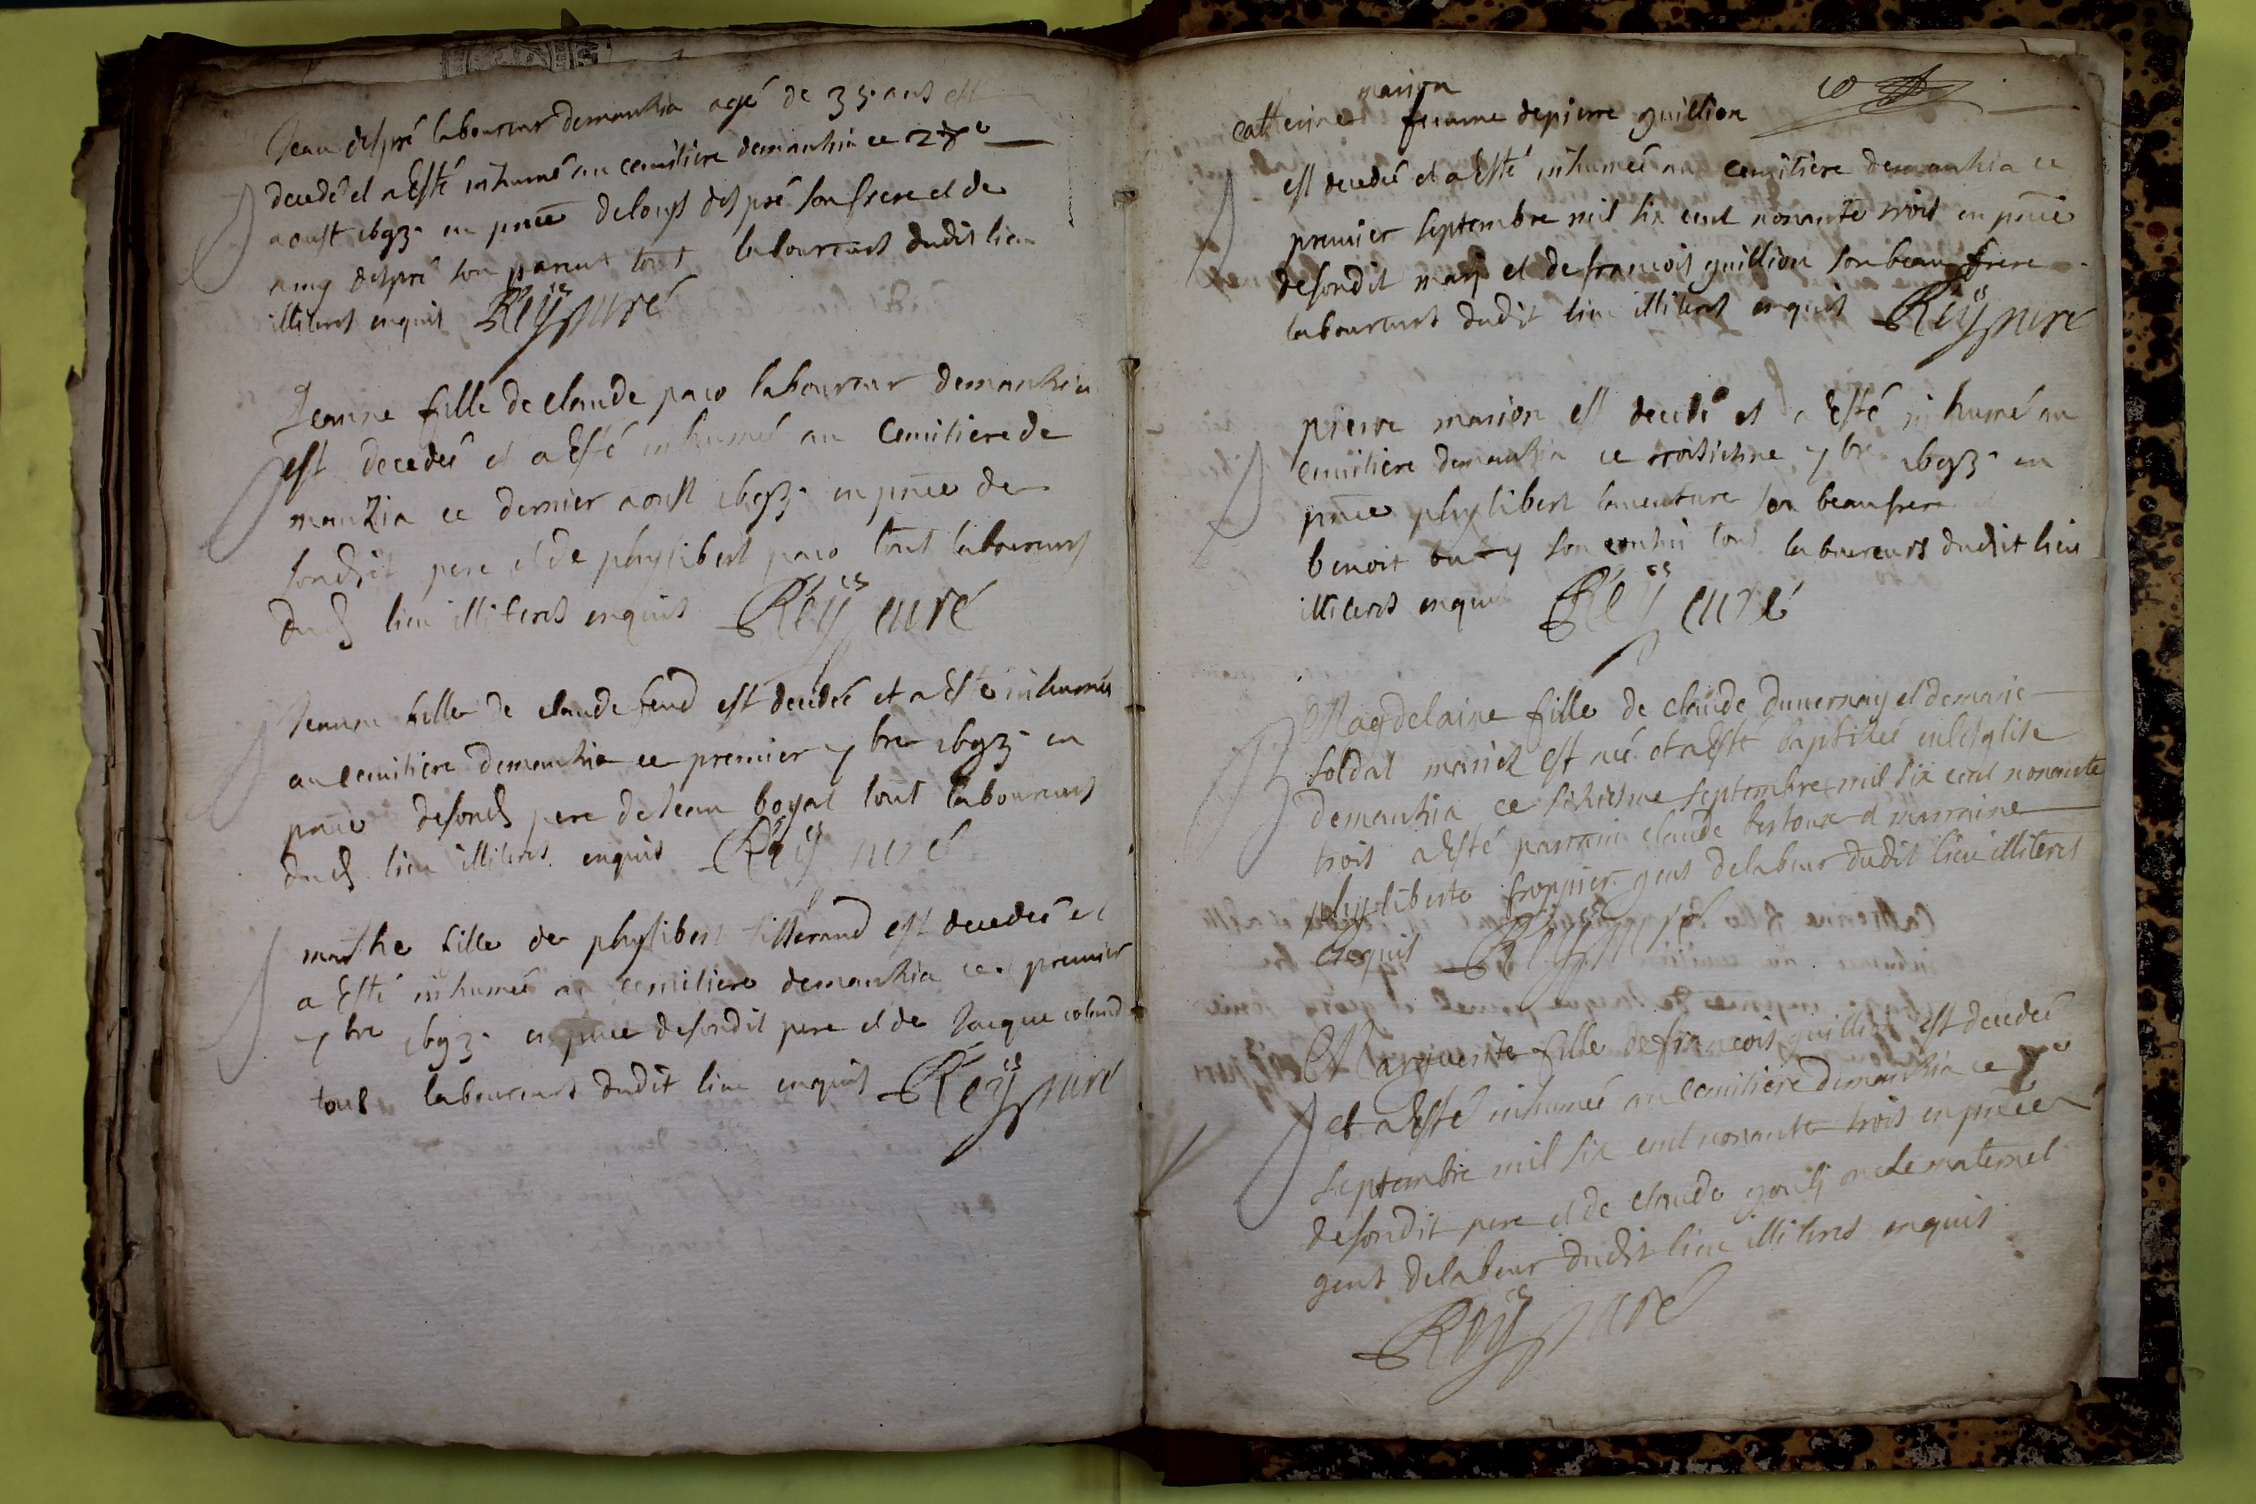 Jean despré laboureur demanhia agé de 35 ans est
decedé et a Esté inhumé au cemitiere demanhia ce
aoust 1693 en pñce de loüys despré son frere et de
despré son parent tous laboureurs dudit lieu
illiteres enquis Reÿ curé
Jeanne fille de claude paco laboureur demanhia
est decedeé et a Esté inhumeé au cemitiere de
manhia ce dernier aoust 1693 en pñce de
sondit pere et de phylibert paco tous laboureurs
dud lieu illiteres enquis Reÿ curé
Jeanne fille de claude est decedeé et a Esté inhumeé
au cemitiere demanhia ce premier 7bre 1693 en
pñce desond pere de Jean boyat tous laboureurs
dud lieu illiteres enquis Reÿ curé
marthe fille de phylibert tisserand est decedeé et
a Esté inhumeé au cemitiere demanhia ce premier
7bre 1693 en pñce desondit pere et de Jacque
tous laboureurs dudit lieu enquis Reÿ curé
10
marion
catterine femme depierre guillion
est decedeé et a Esté inhumeé au cemitiere demanhia ce
premier septembre mil six cent nonante trois en pñce
desondit mary et de francois guillion son beau frere
laboureurs dudit lieu illiteres enquis Reÿ curé
pierre marion est decedé et a Esté inhumé au
cemitiere demanhia ce troisiesme 7bre 1693 en
pñce phylibert son beaufrere
benoit son tous laboureurs dudit lieu
illiteres enquis Reÿ curé
Magdelaine fille de claude duuernay et de marie
soldat mariez est neé et a Esté baptiseé en lesglise
demanhia ce sixiesme septembre mil six cent nonante
trois a Esté parrain claude bertoux et marraine
phyliberte froppier gens delabeur dudit lieu illiteres
enquis Reÿ curé
Marguerite fille de francois guillion est decedeé
et a Esté inhumeé au cemitiere demanhia ce
septembre mil six cent nonante trois en pñce
desondit pere et de claude oncle maternel
gens delabeur dudit lieu illiteres enquis
Reÿ curé